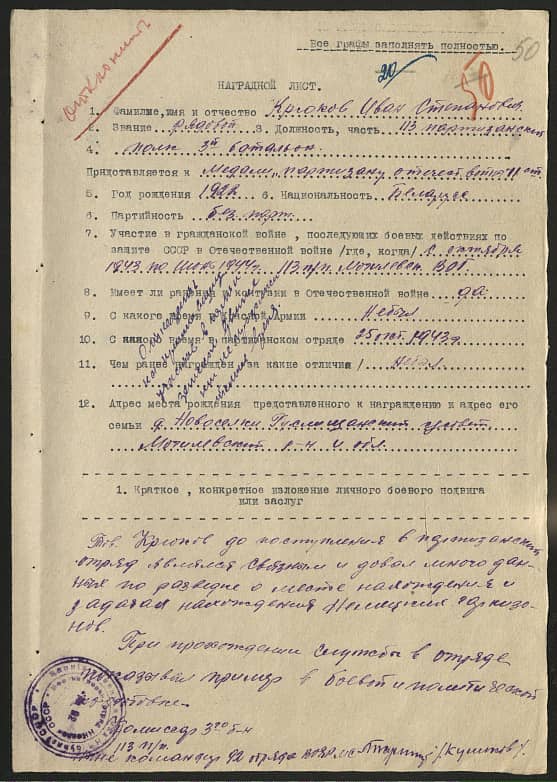 отклонить
Все графы заполнять полностью.
50
20
50
НАГРАДНОЙ ЛИСТ.
1. Фамилие,имя и отчество Крюков Иван Степанович
2. Звание рядовой 3. Должность, часть 113 партизанский
4. полк 3й батальон.
Придставляется к Медали „партизану отечествен. II ст.
5. Год рождения 1922 6. Национальность Белорус
6. Партийность без парт.
7. Участие в гражданской войне , последующих боевых действиях по
защите СССР в Отечественной войне /где, когда/ с октября
1943 по 1944г. 113 п/п. Могилевск ВОГ.
8. Имеет ли ранения и контузии в Отечественной войне да
9. С какого время в Красной Армии не был
10. С время в партизанском отряде 25 окт. 1943г.
11. Чем ранее награжден /за какие отличия/ не был.
12. Адрес места рождения представленного к награждению и адрес его
семьи д. Новоселки
Могилевский р-н и обл.
1. Краткое , конкретное изложение личного боевого подвига
или заслуг
Тов. Крюков до поступления в партизанский
отряд являлся связным и давал много дан-
ных по разведке о месте нахождения и
задачах нахождения Немецких гарнизо-
нов.
При прохождении службы в отряде
показывал пример в боевой и политической
Комисар 3го б-н
113 п/п.